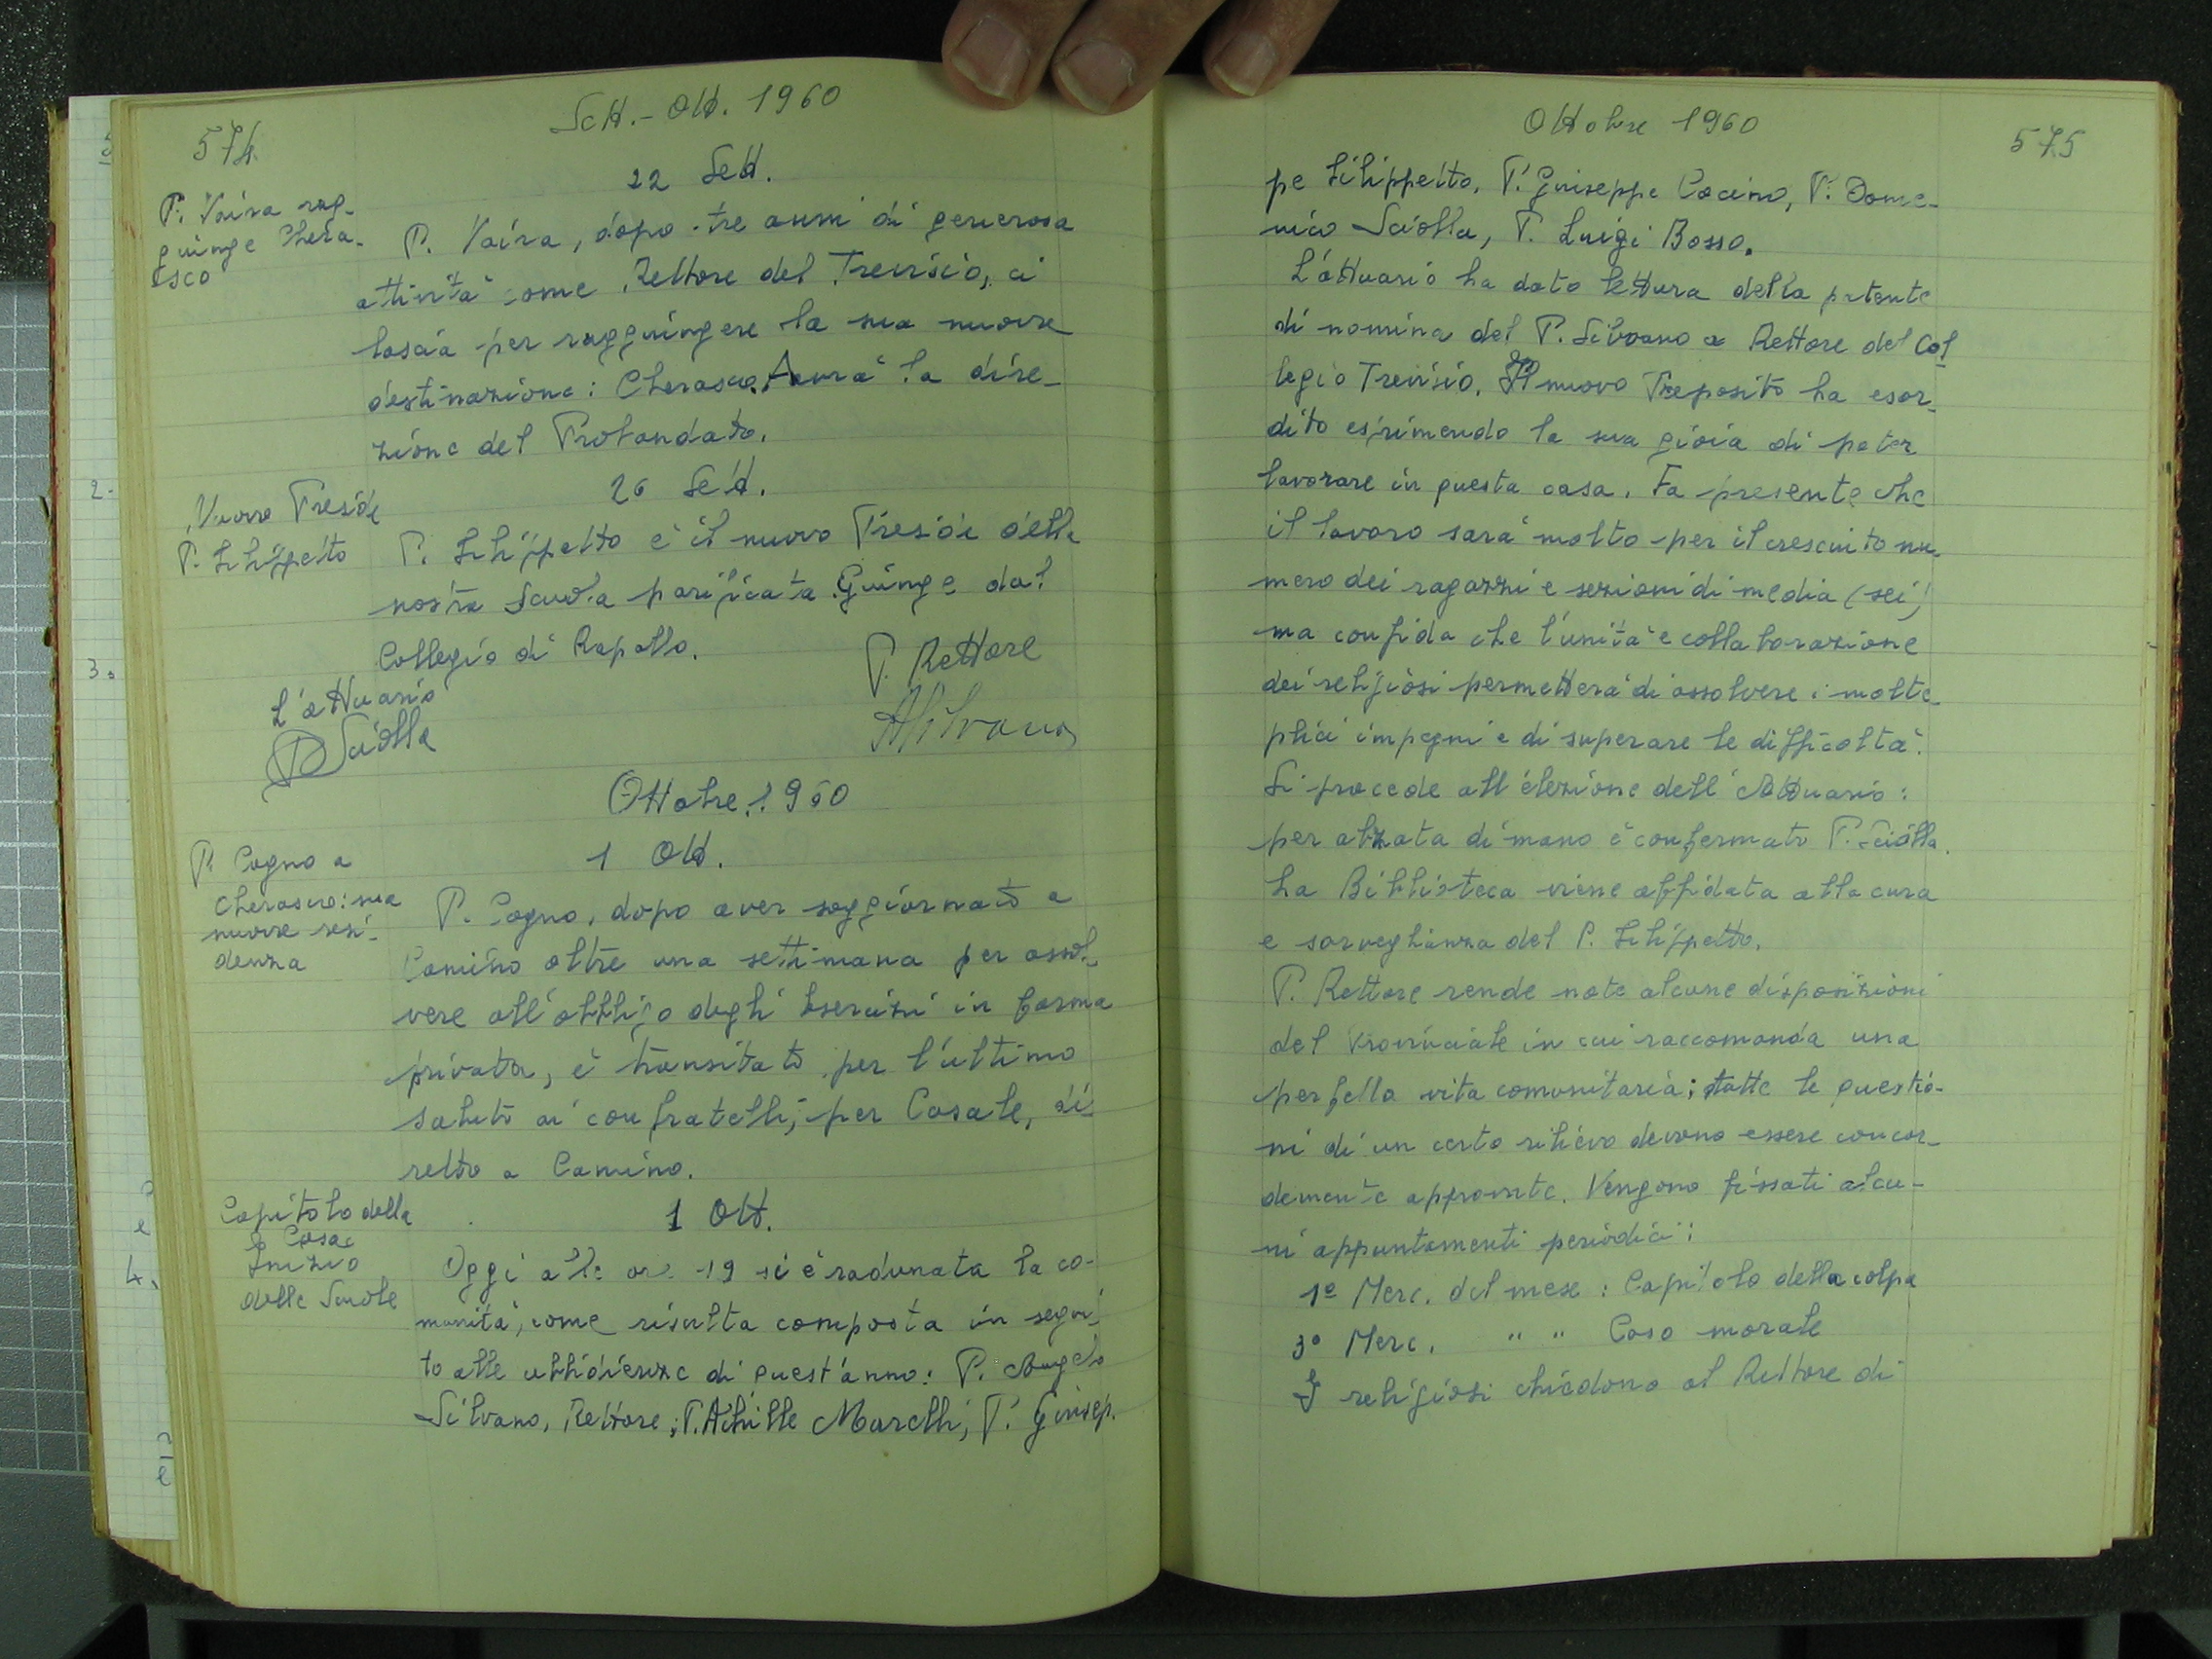 574
Sett.-Ott. 1960
22 Sett.
P. Vaira rag-
giunge Chera-
sco
P. Vaira, dopo tre anni di generosa
attività come Rettore del Trevisio, ci
lascia per raggiungere la sua nuova
destinazione: Cherasco. Avrà la dire-
zione del Probandato.
26 Sett.
Nuovo Preside
P. Filippetto
P. Filippetto è il nuovo Preside della
nostra Scuola parificata. Giunge dal
Collegio di Rapallo.
L'attuario
P. Rettore
DSciolla
ASilvano
Ottobre 1960
1 Ott.
P. Cogno a
Cherasco: sua
nuova resi-
denza
P. Cogno, dopo aver soggiornato a
Camino oltre una settimana per assol-
vere all'obbligo degli Esercizi in forma
privata, è transitato per l'ultimo
saluto ai confratelli, per Casale, di-
retto a Camino.
Capitolo della
Casa e
Inizio
delle Scuole
1 Ott.
Oggi alle ore 19 si è radunata la co-
munità, come risulta composta in segui-
to alle ubbidienze di quest'anno: P. Angelo
Silvano, Rettore; P. Achille Marelli, P. Giusep-
Ottobre 1960
575
pe Filippetto, P. Giuseppe Cocino, P. Dome-
nico Sciolla, P. Luigi Bosso.
L'attuario ha dato lettura della patente
di nomina del P. Silvano a Rettore del Col
legio Trevisio. Il nuovo Preposito ha esor-
dito esprimendo la sua gioia di poter
lavorare in questa casa. Fa presente che
il lavoro sarà molto per il cresciuto nu-
mero dei ragazzi e sezioni di media (sei)
ma confida che l'unità e collaborazione
dei religiosi permetterà di assolvere i molte-
plici impegni e di superare le difficoltà.
Si procede all'elezione dell'Attuario:
per alzata di mano è confermato P. Sciolla.
La Biblioteca viene affidata alla cura
e sorveglianza del P. Filippetto.
P. Rettore rende note alcune disposizioni
del Provinciale in cui raccomanda una
perfetta vita comunitaria; tutte le questio-
ni di un certo rilievo devono essere concor-
demente approvate. Vengono fissati alcu-
ni appuntamenti periodici:
1º Merc. del mese: Capitolo della colpa
3º Merc. " " Caso morale
I religiosi chiedono al Rettore di
2.
3.
4.